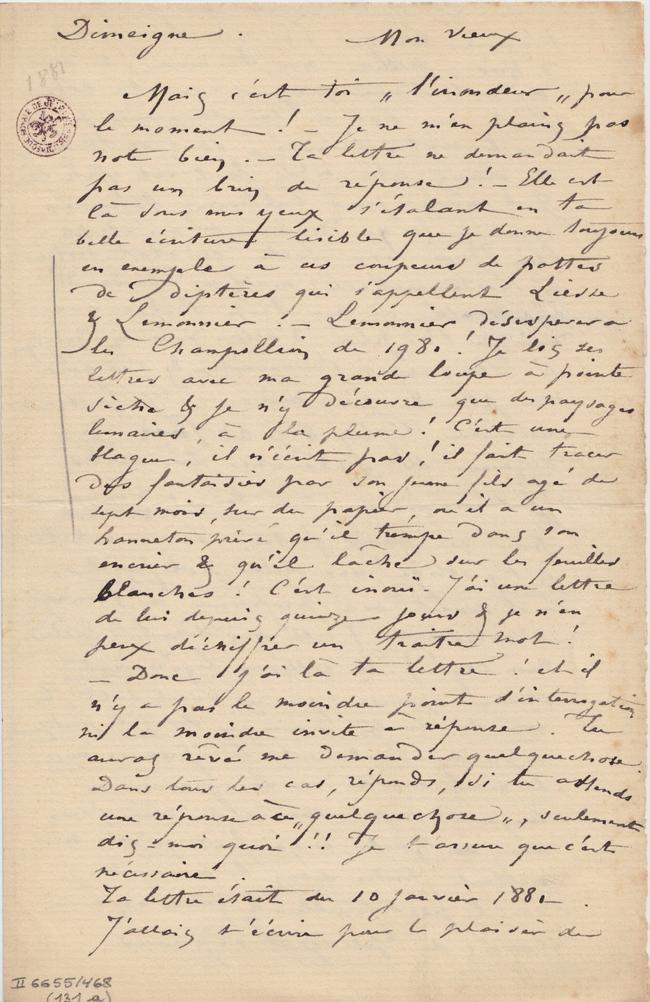 Dimeigne.
Mon Vieux
1881
Mais c'est toi „l'inondeur„ pour
le moment ! – Je ne m'en plains pas
note bien. – Ta lettre ne demandait
pas un brin de réponse ! – Elle est
là sous mes yeux s'étalant en ta
belle écriture lisible que je donne toujours
en exemple à ces coupeurs de pattes
de diptères qui s'appellent Liesse
& Lemonnier. – Lemonnier désespérera
les Champollion de 1980 ! Je lis ses
lettres avec ma grande loupe à pointe
sèche & je n'y découvre que des paysages
lunaires, à la plume ! C'est une
blague, il n'écrit pas ! il fait tracer
des fantaisies par son jeune fils agé de
sept mois, sur du papier, où il a un
hanneton privé qu'il trempe dans son
encrier & qu'il lache sur les feuilles
blanches ! C'est inouï. J'ai une lettre
de lui depuis quinze jours & je n'en
peux déchiffrer un traitre mot !
– Donc j'ai là ta lettre ! et il
n'y a pas le moindre point d'interrogation
ni la moindre invite à réponse. Tu
auras rêvé me demander quelquechose.
Dans tous les cas, réponds, si tu attends
une réponse à ce „quelquechose„, seulement
dis-moi quoi !! Je t'assure que c'est
nécessaire.
Ta lettre était du 10 Janvier 1881.
J'allais t'écrire pour le plaisir de
II 6655/468
(131 a)